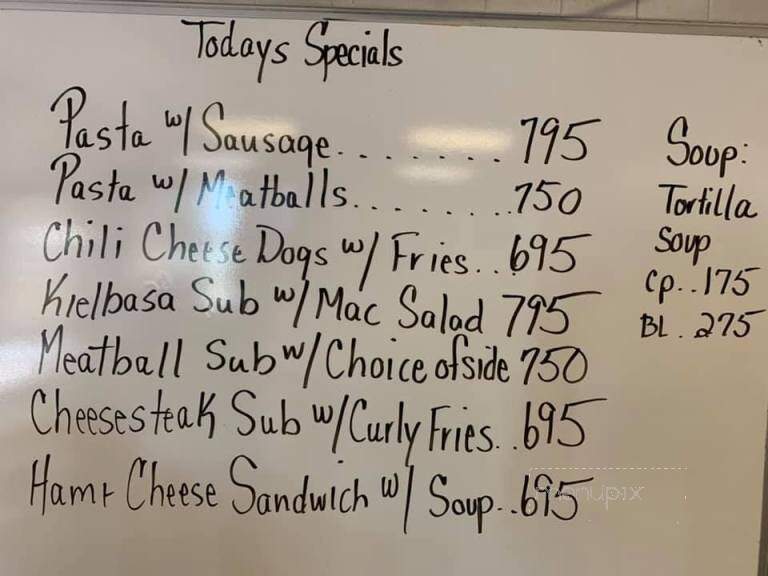 Todays Specials
Pasta w/ Sausage........795
Pasta w/ Meatballs........750
Chili Cheese Dogs w/ Fries..695
Kielbasa Sub w/ Mac Salad 795
Meatball Sub w/ Choice of side 750
Cheesesteak Sub w/ Curly Fries..695
Ham + Cheese Sandwich w/ Soup..695
Soup:
Tortilla
Soup
Cp..175
BL.275
menupix